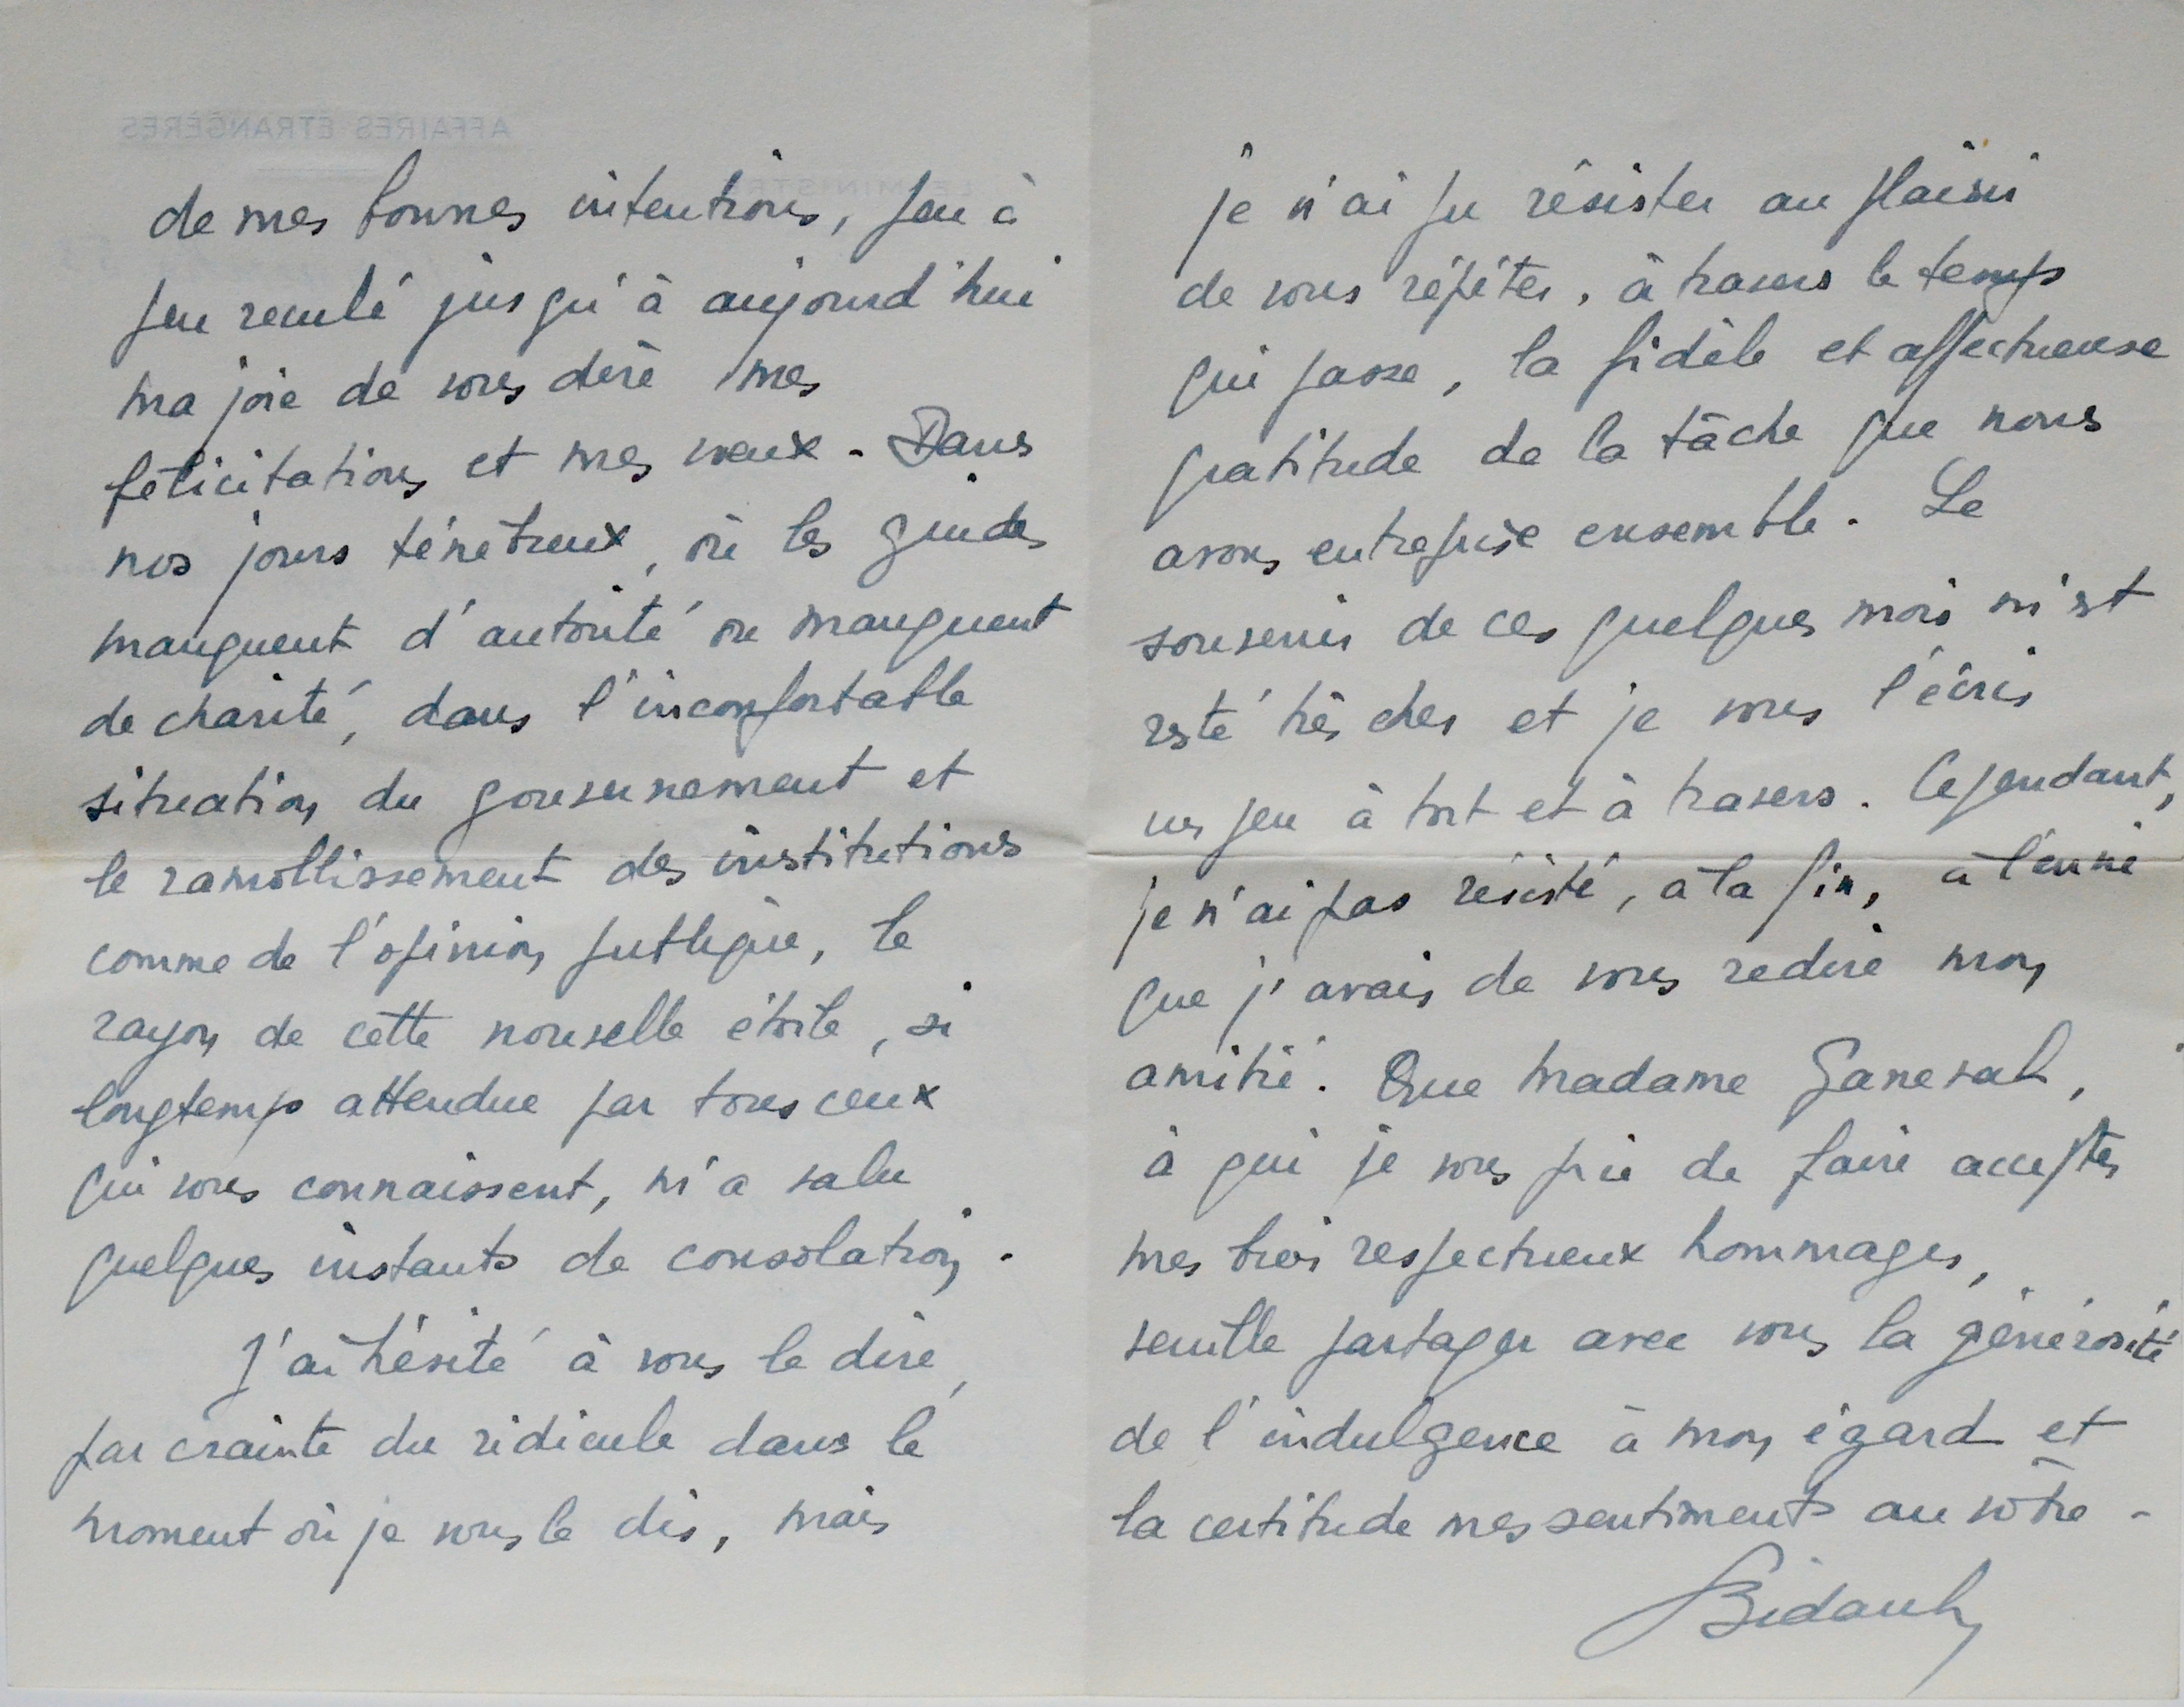 AFFAIRES ETRANGÈRES
LE MINISTRE
de mes bonnes intentions, peu à
peu reculé jusqu'à aujourd'hui
ma joie de vous dire mes
félicitations et mes vœux. Dans
nos jours ténébreux, où les guides
manquent d'autorité ou manquent
de charité, dans l'inconfortable
situation du gouvernement et
le ramollissement des institutions
comme de l'opinion publique, le
rayon de cette nouvelle étoile, si
longtemps attendue par tous ceux
qui vous connaissent, m'a valu
quelques instants de consolation.
J'ai hésité à vous le dire,
par crainte du ridicule dans le
moment où je vous le dis, mais
je n'ai pu résister au plaisir
de vous répéter, à travers le temps
qui passe, la fidèle et affectueuse
gratitude de la tâche que nous
avons entreprise ensemble. Le
souvenir de ces quelques mois m'est
resté très cher et je vous l'écris
un peu à tort et à travers. Cependant,
je n'ai pas résisté, à la fin, à l'envie
que j'avais de vous redire mon
amitié. Que Madame Ganeval,
à qui je vous prie de faire accepter
mes bien respectueux hommages,
veuille partager avec vous la générosité
de l'indulgence à mon égard et
la certitude mes sentiments au vôtre -
Bidault